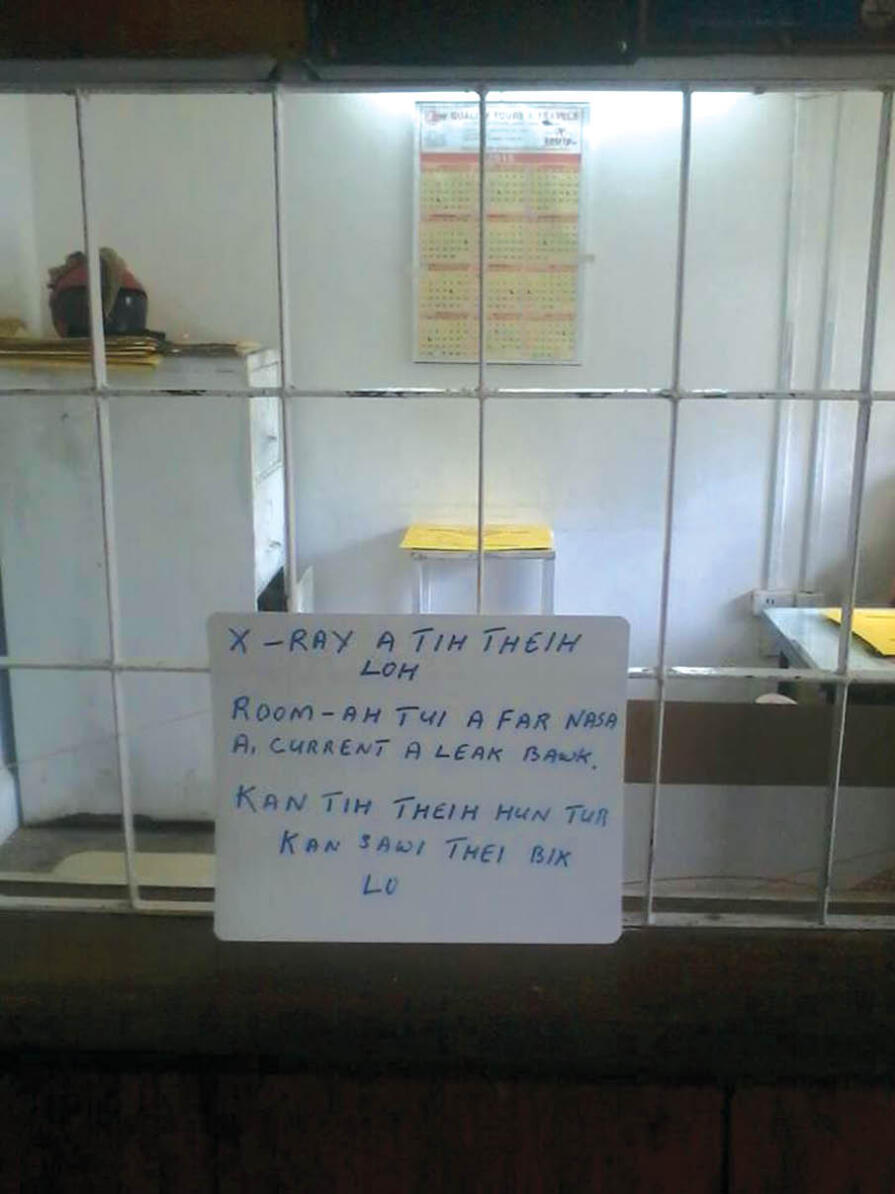 QUALITY TOURS & TRAVELS
2015
X-RAY A TIH THEIH
LOH
ROOM-AH TUI A FAR NASA
A, CURRENT A LEAK BAWK.
KAN TIH THEIH HUN TUR
KAN SAWI THEI BIK
LO